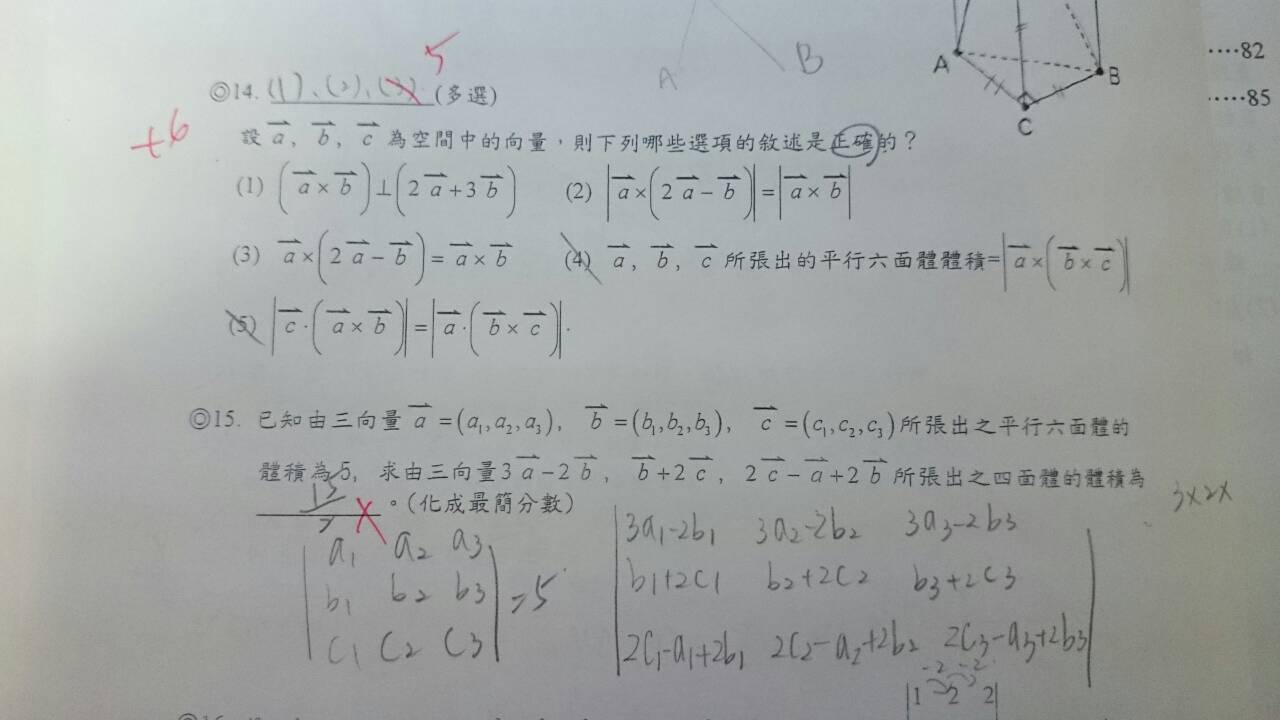 A B
A B
C
····82
·····85
5
◎14. (1)、(2)、(3) (多選)
+6
設 a⃗, b⃗, c⃗ 為空間中的向量,則下列哪些選項的敘述是正確的?
(1) (a⃗×b⃗)⊥(2a⃗+3b⃗) (2) |a⃗×(2a⃗-b⃗)|=|a⃗×b⃗|
(3) a⃗×(2a⃗-b⃗)=a⃗×b⃗ (4) a⃗, b⃗, c⃗ 所張出的平行六面體體積=|a⃗×(b⃗×c⃗)|
(5) |c⃗·(a⃗×b⃗)|=|a⃗·(b⃗×c⃗)|.
◎15. 已知由三向量 a⃗=(a₁,a₂,a₃), b⃗=(b₁,b₂,b₃), c⃗=(c₁,c₂,c₃)所張出之平行六面體的
體積為 5, 求由三向量3a⃗-2b⃗, b⃗+2c⃗, 2c⃗-a⃗+2b⃗所張出之四面體的體積為
。(化成最簡分數)
3×2×
a₁ a₂ a₃
b₁ b₂ b₃ =5
c₁ c₂ c₃
3a₁-2b₁ 3a₂-2b₂ 3a₃-2b₃
b₁+2c₁ b₂+2c₂ b₃+2c₃
2c₁-a₁+2b₁ 2c₂-a₂+2b₂ 2c₃-a₃+2b₃
-2 -2
|1 2 2|